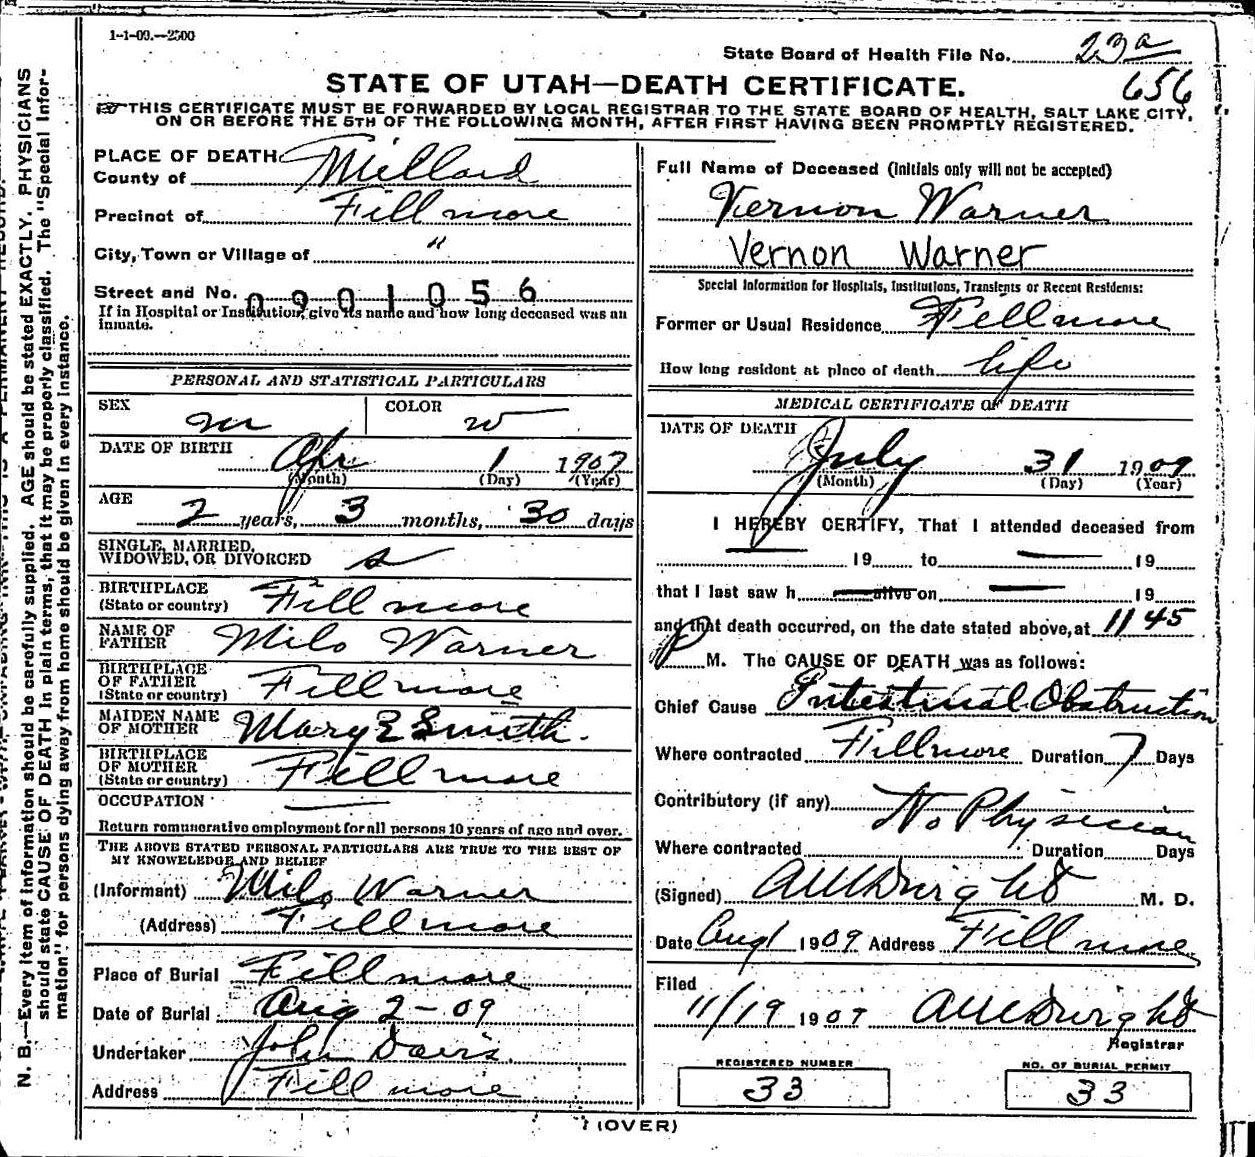 1-1-09.—2500
State Board of Health File No. 23a
656
STATE OF UTAH—DEATH CERTIFICATE.
THIS CERTIFICATE MUST BE FORWARDED BY LOCAL REGISTRAR TO THE STATE BOARD OF HEALTH, SALT LAKE CITY,
ON OR BEFORE THE 5TH OF THE FOLLOWING MONTH, AFTER FIRST HAVING BEEN PROMPTLY REGISTERED.
PLACE OF DEATH
County of Millard
Precinct of Fillmore
City, Town or Village of "
Street and No. 0901056
If in Hospital or Institution, give its name and how long deceased was an
inmate.
PERSONAL AND STATISTICAL PARTICULARS
SEX m COLOR w
DATE OF BIRTH Apr 1 1907
(Month) (Day) (Year)
AGE 2 years, 3 months, 30 days
SINGLE, MARRIED,
WIDOWED, OR DIVORCED s
BIRTHPLACE
(State or country) Fillmore
NAME OF
FATHER Milo Warner
BIRTHPLACE
OF FATHER
(State or country) Fillmore
MAIDEN NAME
OF MOTHER Mary E Smith.
BIRTHPLACE
OF MOTHER
(State or country) Fillmore
OCCUPATION
Return remunerative employment for all persons 10 years of age and over.
THE ABOVE STATED PERSONAL PARTICULARS ARE TRUE TO THE BEST OF
MY KNOWLEDGE AND BELIEF
(Informant) Milo Warner
(Address) Fillmore
Place of Burial Fillmore
Date of Burial Aug 2-09
Undertaker John Davis
Address Fillmore
Full Name of Deceased (initials only will not be accepted)
Vernon Warner
Vernon Warner
Special Information for Hospitals, Institutions, Transients or Recent Residents:
Former or Usual Residence Fillmore
How long resident at place of death life
MEDICAL CERTIFICATE OF DEATH
DATE OF DEATH
July 31 1909
(Month) (Day) (Year)
I HEREBY CERTIFY, That I attended deceased from
19 to 19
that I last saw h alive on 19
and that death occurred, on the date stated above, at 11 45
P M. The CAUSE OF DEATH was as follows:
Chief Cause Intestinal Obstruction
Where contracted Fillmore Duration 7 Days
Contributory (if any) No Physician
Where contracted Duration Days
(Signed) M. D.
Date Aug 1 1909 Address Fillmore
Filed
11/19 1909
Registrar
REGISTERED NUMBER
33
NO. OF BURIAL PERMIT
33
(OVER)
N. B.—Every item of information should be carefully supplied. AGE should be stated EXACTLY. PHYSICIANS
should state CAUSE OF DEATH in plain terms, that it may be properly classified. The "Special Infor-
mation" for persons dying away from home should be given in every instance.